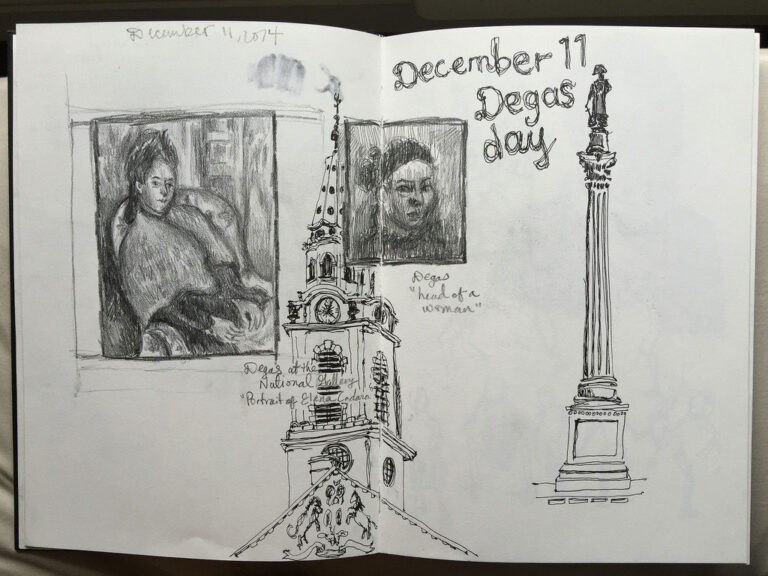 December 11, 2014
December 11
Degas
day
Degas
"head of a
woman"
Degas at the
National Gallery
"Portrait of Elena Carafa